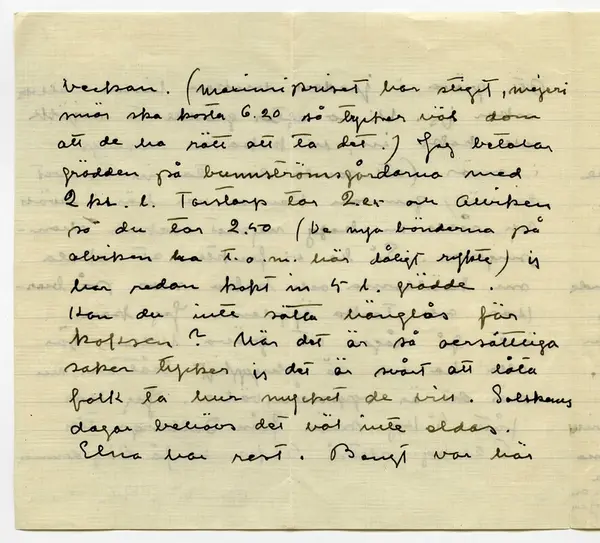 veckan. (Maximipriset har stiget, mejeri
smör ska kosta 6.20 så tycker väl dom
att de ha rätt att ta det.) Jag betalar
grädden på bunnströmsgårdarna med
2 kr. l. Torstorp tar 2.25 och Alviken
så du tar 2.50 (De nya bönderna på
alviken ha t.o.m. här dåligt rykte) jg
har redan köpt in 5 l. grädde.
Kan du inte sätta hänglås för
koksen? När det är så oersättliga
saker tycker jg det är svårt att låta
folk ta hur mycket de vill. Solskens
dagar behövs det väl inte eldas.
Elna har rest. Bengt var här